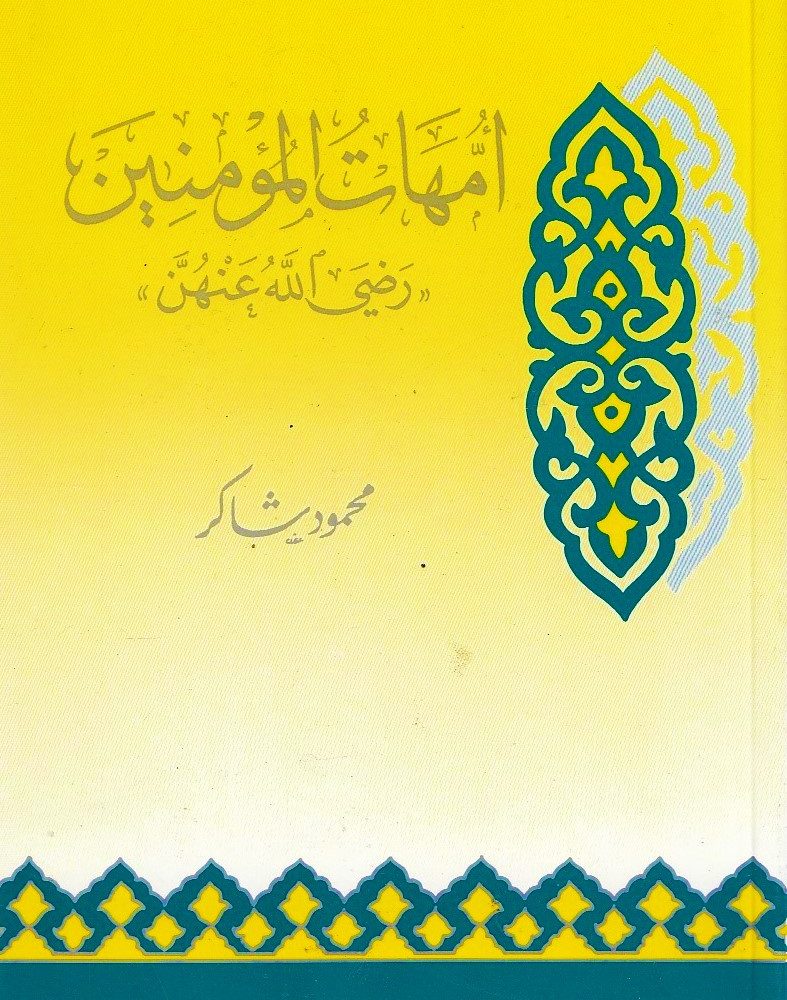 أُمَّهَاتُ المُؤْمِنِينَ
«رَضِيَ اللَّهُ عَنْهُنَّ»
محمود شاكر